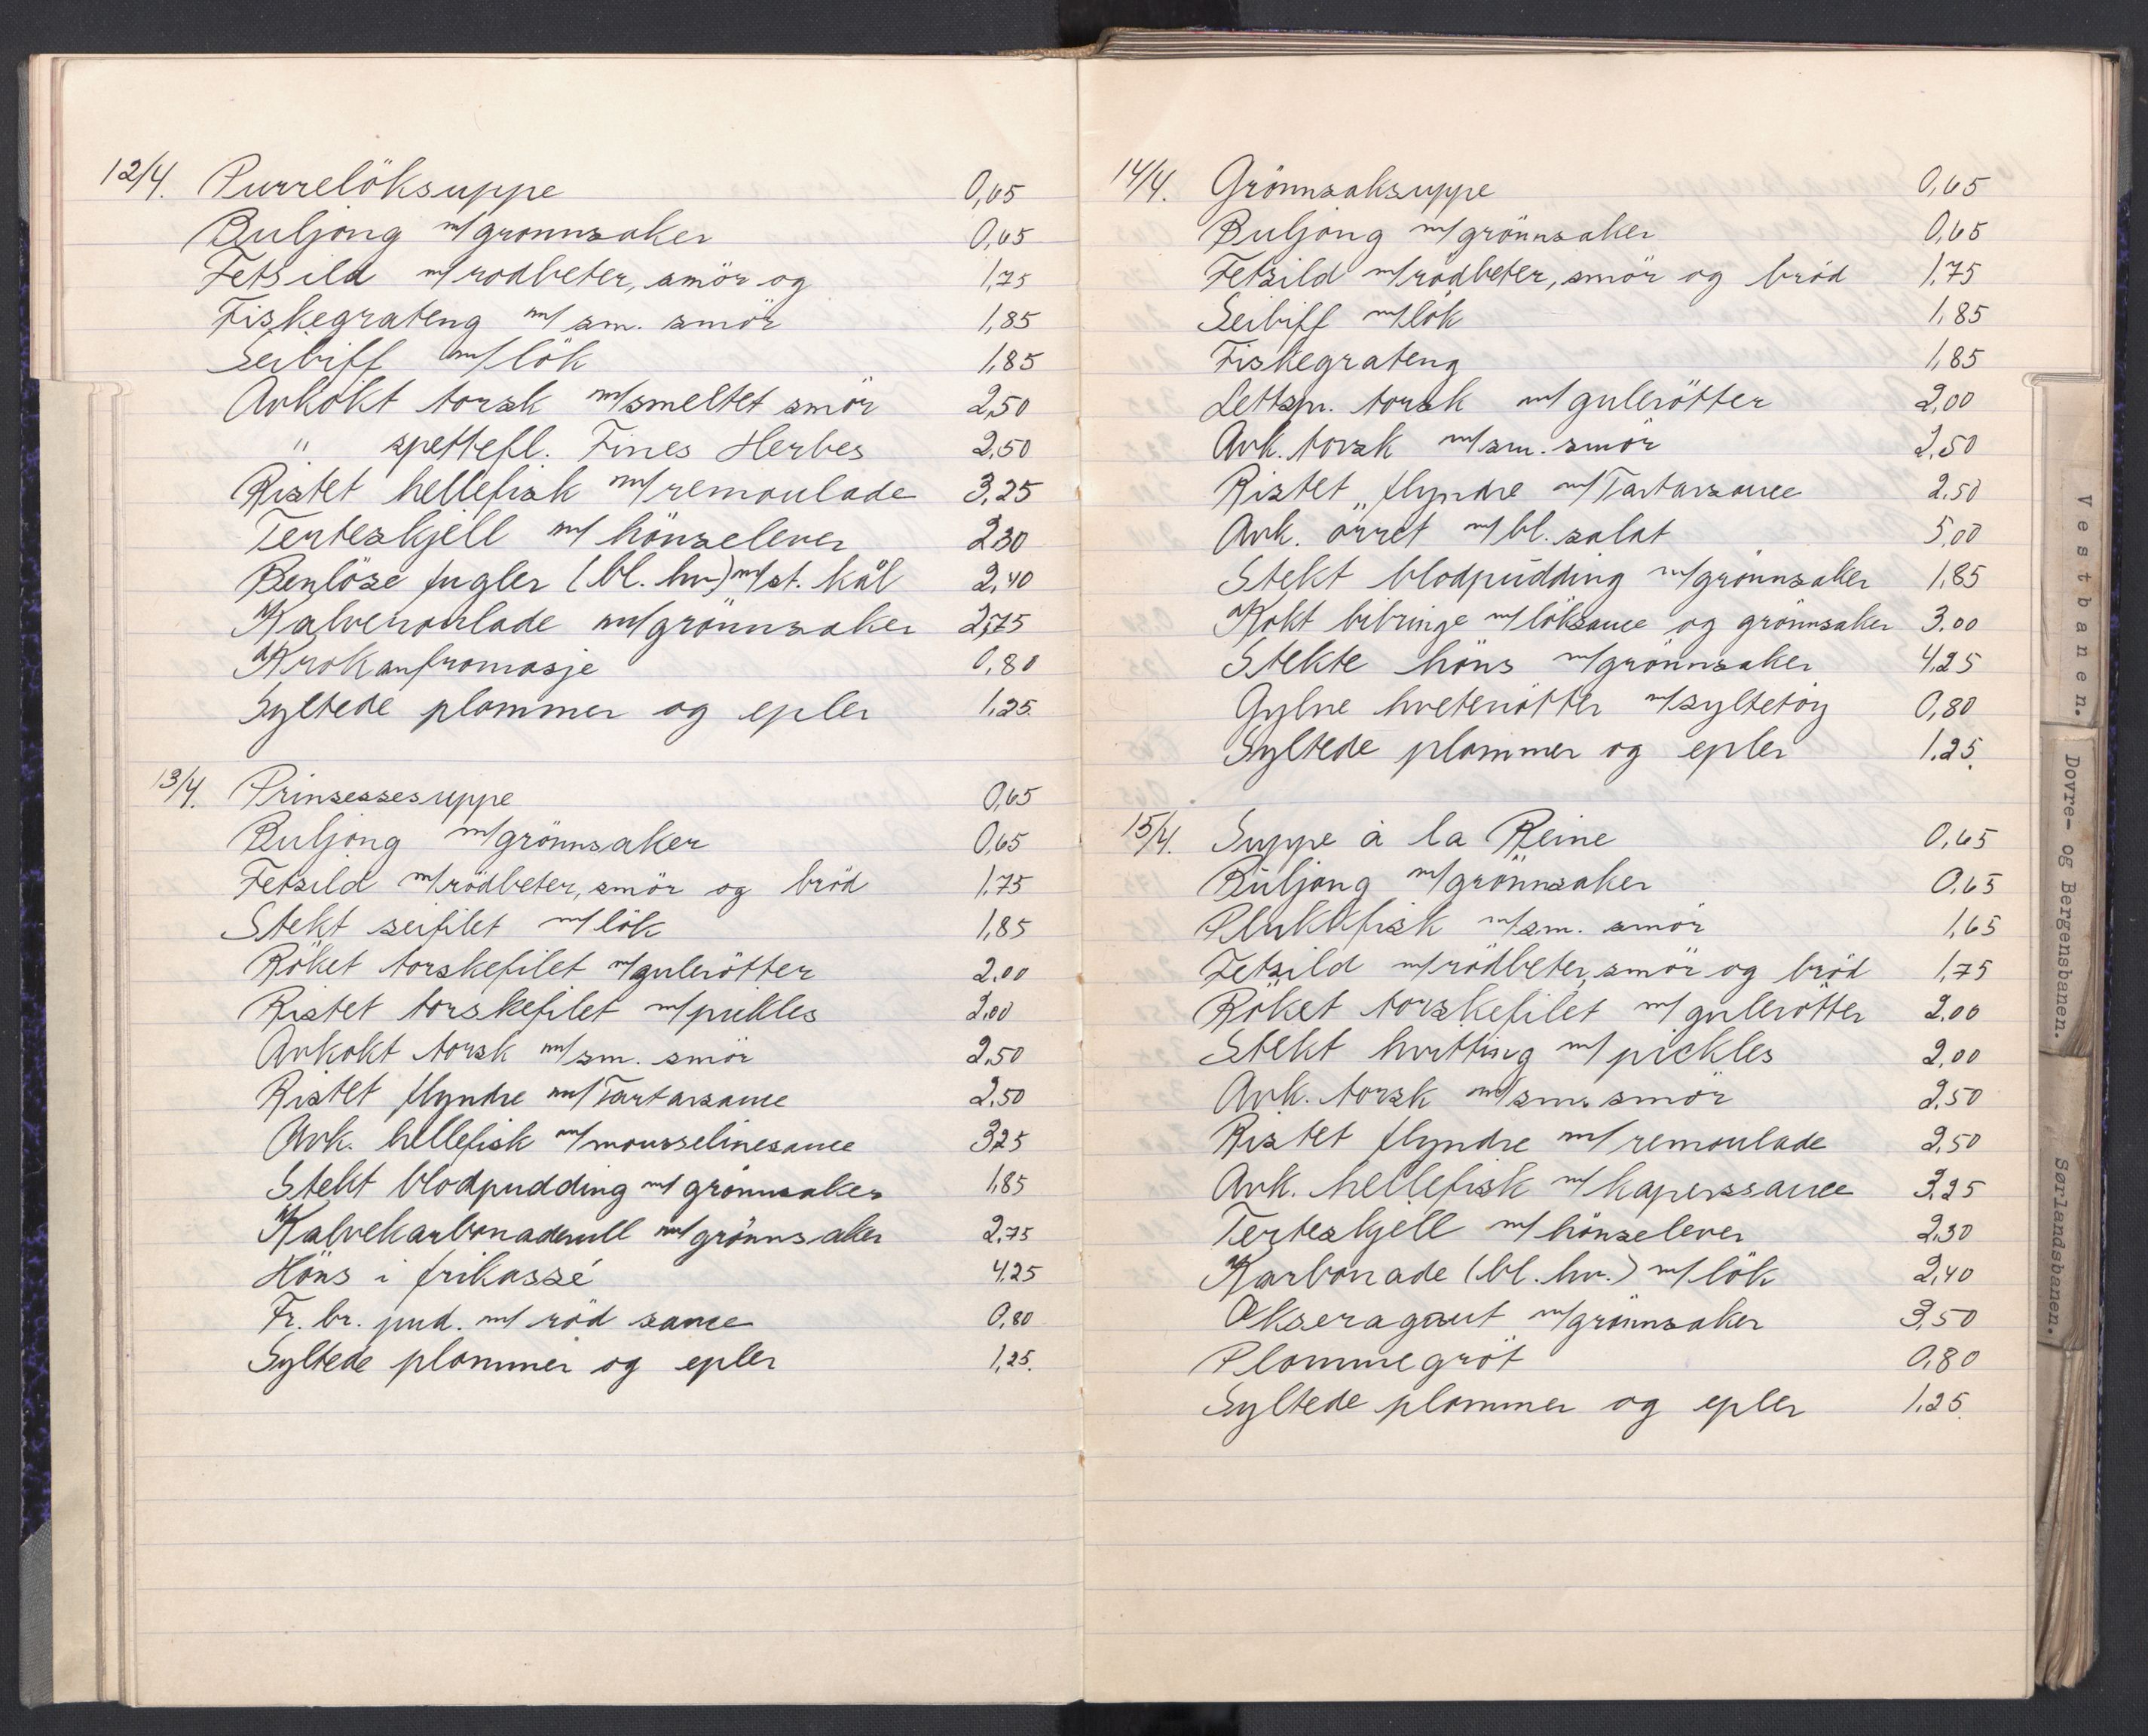 12/4. Purrelöksuppe 0,65
Buljong m/grønnsaker 0,65
Fetsild m/rødbeter, smör og 1,75
Fiskegrateng m/ sm. smör 1,85
Seibiff m/lök 1,85
Avkökt torsk m/smeltet smör 2,50
" spettefl. Fines Herbes 2,50
Ristet hellefisk m/remoulade 3,25
Terteskjell m/ hönselever 2,30
Benlöse fugler (bl. hv.) m/st. kål 2,40
Kalveroulade m/grönnsaker 2,75
Krokanfromasje 0,80
Syltede plommer og epler 1,25.
13/4. Prinsessesuppe 0,65
Buljong m/grönnsaker 0,65
Fetsild m/rödbeter, smör og bröd 1,75
Stekt seifilet m/lök 1,85
Röket torskefilet m/gulerötter 2.00
Ristet torskefilet m/pickles 2.00
Avkokt torsk m/sm. smör 2,50
Ristet flyndre m/Tartarsauce 2,50
Avk. hellefisk m/mousselinesauce 3,25
Stekt blodpudding m/ grönnsaker 1,85
Kalvekarbonaderull m/grönnsaker 2,75
Höns i frikassé 4,25
Fr. br. pud. m/ röd sauce 0,80
Syltede plommer og epler 1,25.
14/4. Grönnsaksuppe 0,65
Buljong m/grönnsaker 0,65
Fetsild m/rödbeter, smör og bröd 1,75
Seibiff m/lök 1,85
Fiskegrateng 1,85
Lettspr. torsk m/gulerötter 2,00
Avk. torsk m/sm. smör 2,50
Ristet flyndre m/Tartarsauce 2.50
Avk. örret m/bl. salat 5,00
Stekt blodpudding m/grönnsaker 1,85
Kokt bibringe m/löksauce og grönnsaker 3.00
Stekte höns m/grönnsaker 4,25
Gylne hveterötter m/syltetöy 0,80
Syltede plommer og epler 1.25.
15/4. Suppe à la Reine 0,65
Buljong m/grönnsaker 0.65
Plukkfisk m/sm. smör 1,65
Fetsild m/rödbeter, smör og bröd 1,75
Röket torskefilet m/gulerötter 2.00
Stekt hvitting m/ pickles 2,00
Avk. torsk m/sm. smör 2,50
Ristet flyndre m/ remoulade 2,50
Avk. hellefisk m/kaperssauce 3,25
Terteskjell m/hönselever 2,30
Karbonade (bl. hv.) m/lök 2,40
Okseragout m/grönnsaker 3,50
Plommegröt 0,80
Syltede plommer og epler 1,25.
Vestbanen.
Dovre- og Bergensbanen.
Sørlandsbanen.